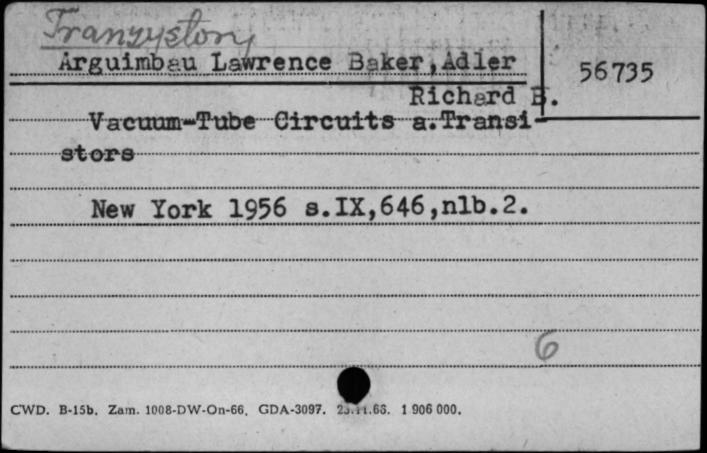 Tranzystory
Arguimbau Lawrence Baker,Adler
56735
Richard B.
Vacuum-Tube Circuits a.Transi-
stors
New York 1956 s.IX,646,nlb.2.
6
CWD. B-15b. Zam. 1008-DW-On-66. GDA-3097. 1 906 000.